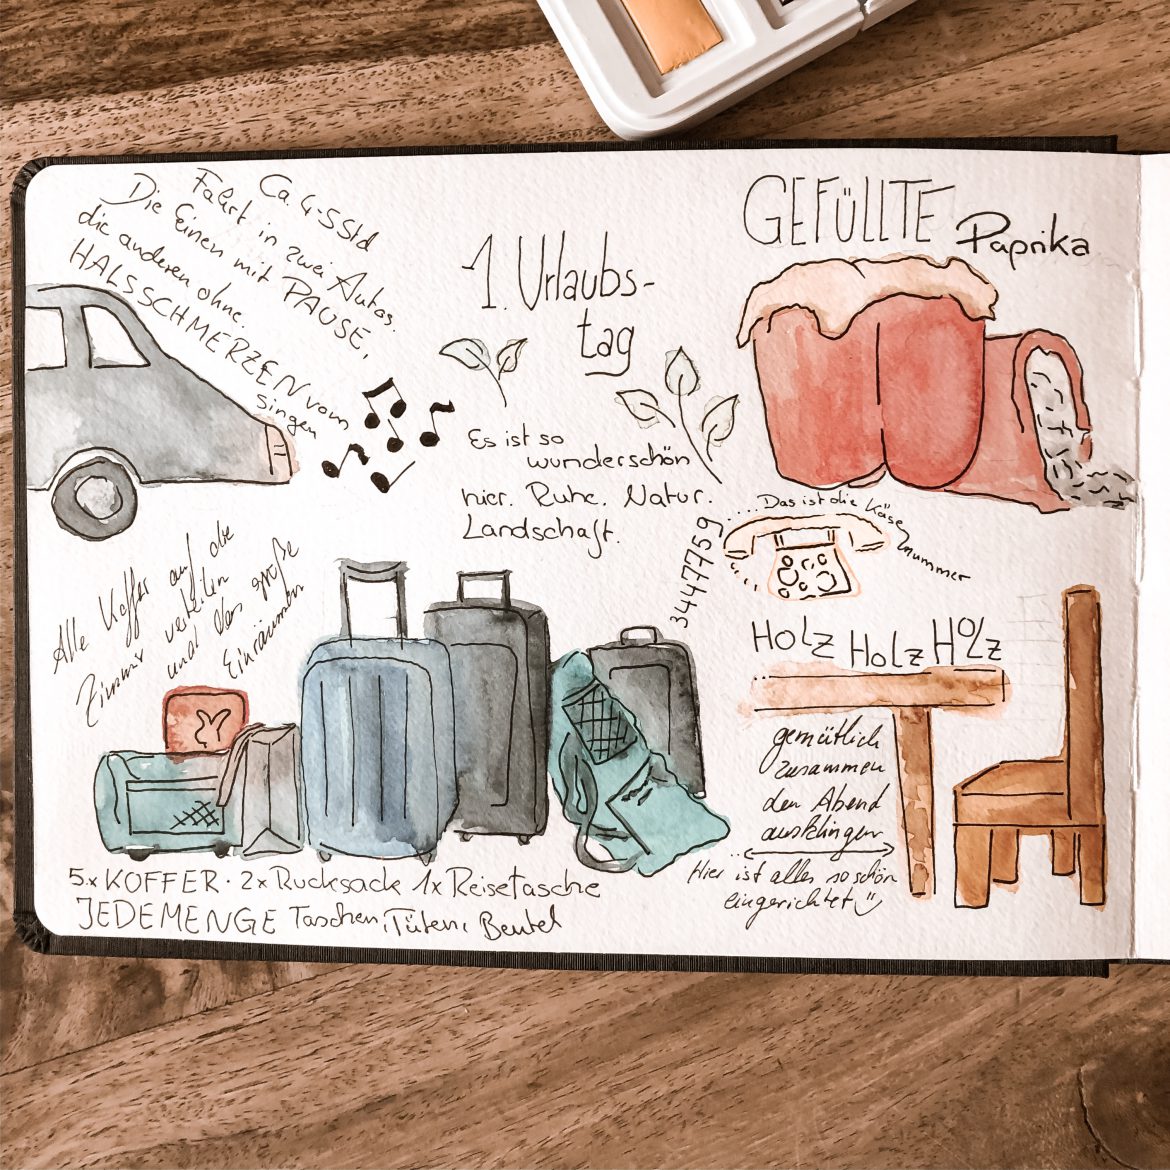 Ca 4-5Std
Fahrt in zwei Autos.
Die Einen mit PAUSE,
die anderen ohne.
HALSSCHMERZEN vom
singen
1. Urlaubs-
tag
Es ist so
wunderschön
hier. Ruhe. Natur.
Landschaft.
GEFÜLLTE Paprika
..... Das ist die Käse
nummer
3447759
Alle Koffer auf die
Zimmer verteilen
und das große
Einräumen
5x KOFFER · 2x Rucksack 1x Reisetasche
JEDEMENGE Taschen, Tüten, Beutel
HOLZ HOLZ HOLZ
gemütlich
zusammen
den Abend
ausklingen
Hier ist alles so schön
eingerichtet